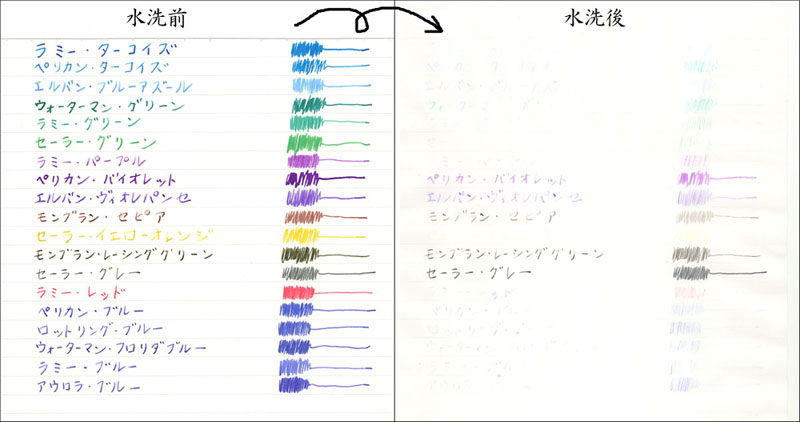 水洗前
ラミー・ターコイズ
ペリカン・ターコイズ
エルバン・ブルーアズール
ウォーターマン・グリーン
ラミー・グリーン
セーラー・グリーン
ラミー・パープル
ペリカン・バイオレット
エルバン・ヴィオレパンセ
モンブラン・セピア
セーラー・イエローオレンジ
モンブラン・レーシンググリーン
セーラー・グレー
ラミー・レッド
ペリカン・ブルー
ロットリング・ブルー
ウォーターマン・フロリダブルー
ラミー・ブルー
アウロラ・ブルー
水洗後
ペリカン・ターコイズ
エルバン・ブルーアズール
ウォーターマン・グリーン
ペリカン・バイオレット
エルバン・ヴィオレパンセ
モンブラン・セピア
モンブラン・レーシンググリーン
セーラー・グレー
ペリカン・ブルー
ロットリング・ブルー